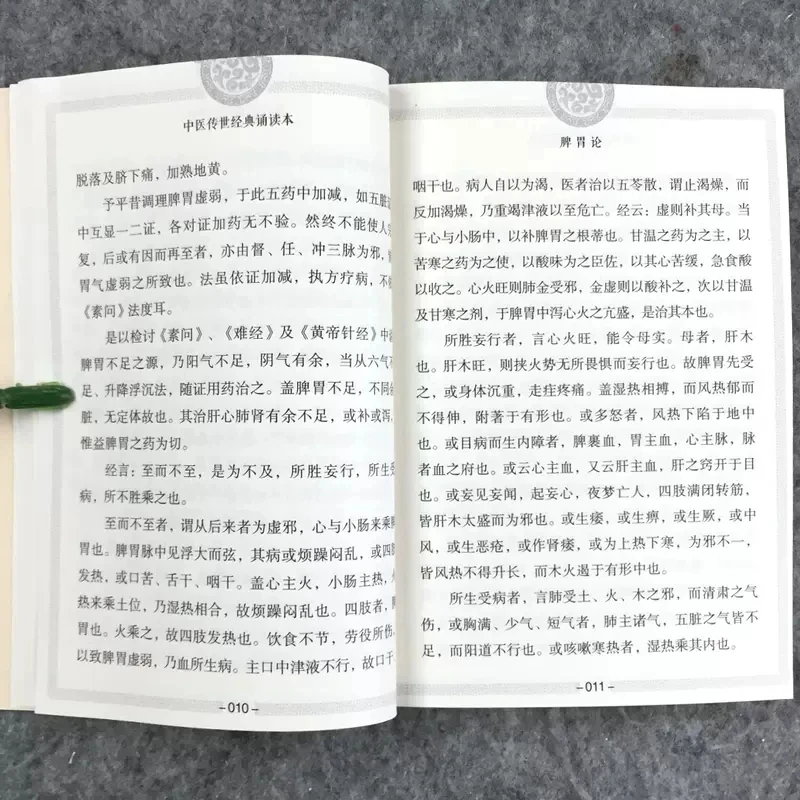 中医传世经典诵读本
脱落及脐下痛，加熟地黄。
予平昔调理脾胃虚弱，于此五药中加减，如五脏证
中互显一二证，各对证加药无不验。然终不能使人完
复，后或有因而再至者，亦由督、任、冲三脉为邪，皆
胃气虚弱之所致也。法虽依证加减，执方疗病，不依
《素问》法度耳。
是以检讨《素问》、《难经》及《黄帝针经》中说
脾胃不足之源，乃阳气不足，阴气有余，当从六气不
足、升降浮沉法，随证用药治之。盖脾胃不足，不同余
脏，无定体故也。其治肝心肺肾有余不足，或补或泻，
惟益脾胃之药为切。
经言：至而不至，是为不及，所胜妄行，所生受
病，所不胜乘之也。
至而不至者，谓从后来者为虚邪，心与小肠来乘脾
胃也。脾胃脉中见浮大而弦，其病或烦躁闷乱，或四肢
发热，或口苦、舌干、咽干。盖心主火，小肠主热，火
热来乘土位，乃湿热相合，故烦躁闷乱也。四肢者，脾
胃也。火乘之，故四肢发热也。饮食不节，劳役所伤，
以致脾胃虚弱，乃血所生病。主口中津液不行，故口干
-010-
脾胃论
咽干也。病人自以为渴，医者治以五苓散，谓止渴燥，而
反加渴燥，乃重竭津液以至危亡。经云：虚则补其母。当
于心与小肠中，以补脾胃之根蒂也。甘温之药为之主，以
苦寒之药为之使，以酸味为之臣佐，以其心苦缓，急食酸
以收之。心火旺则肺金受邪，金虚则以酸补之，次以甘温
及甘寒之剂，于脾胃中泻心火之亢盛，是治其本也。
所胜妄行者，言心火旺，能令母实。母者，肝木
也。肝木旺，则挟火势无所畏惧而妄行也。故脾胃先受
之，或身体沉重，走疰疼痛。盖湿热相搏，而风热郁而
不得伸，附著于有形也。或多怒者，风热下陷于地中
也。或目病而生内障者，脾裹血，胃主血，心主脉，脉
者血之府也。或云心主血，又云肝主血，肝之窍开于目
也。或妄见妄闻，起妄心，夜梦亡人，四肢满闭转筋，
皆肝木太盛而为邪也。或生痿，或生痹，或生厥，或中
风，或生恶疮，或作肾痿，或为上热下寒，为邪不一，
皆风热不得升长，而木火遏于有形中也。
所生受病者，言肺受土、火、木之邪，而清肃之气
伤，或胸满、少气、短气者，肺主诸气，五脏之气皆不
足，而阳道不行也。或咳嗽寒热者，湿热乘其内也。
-011-